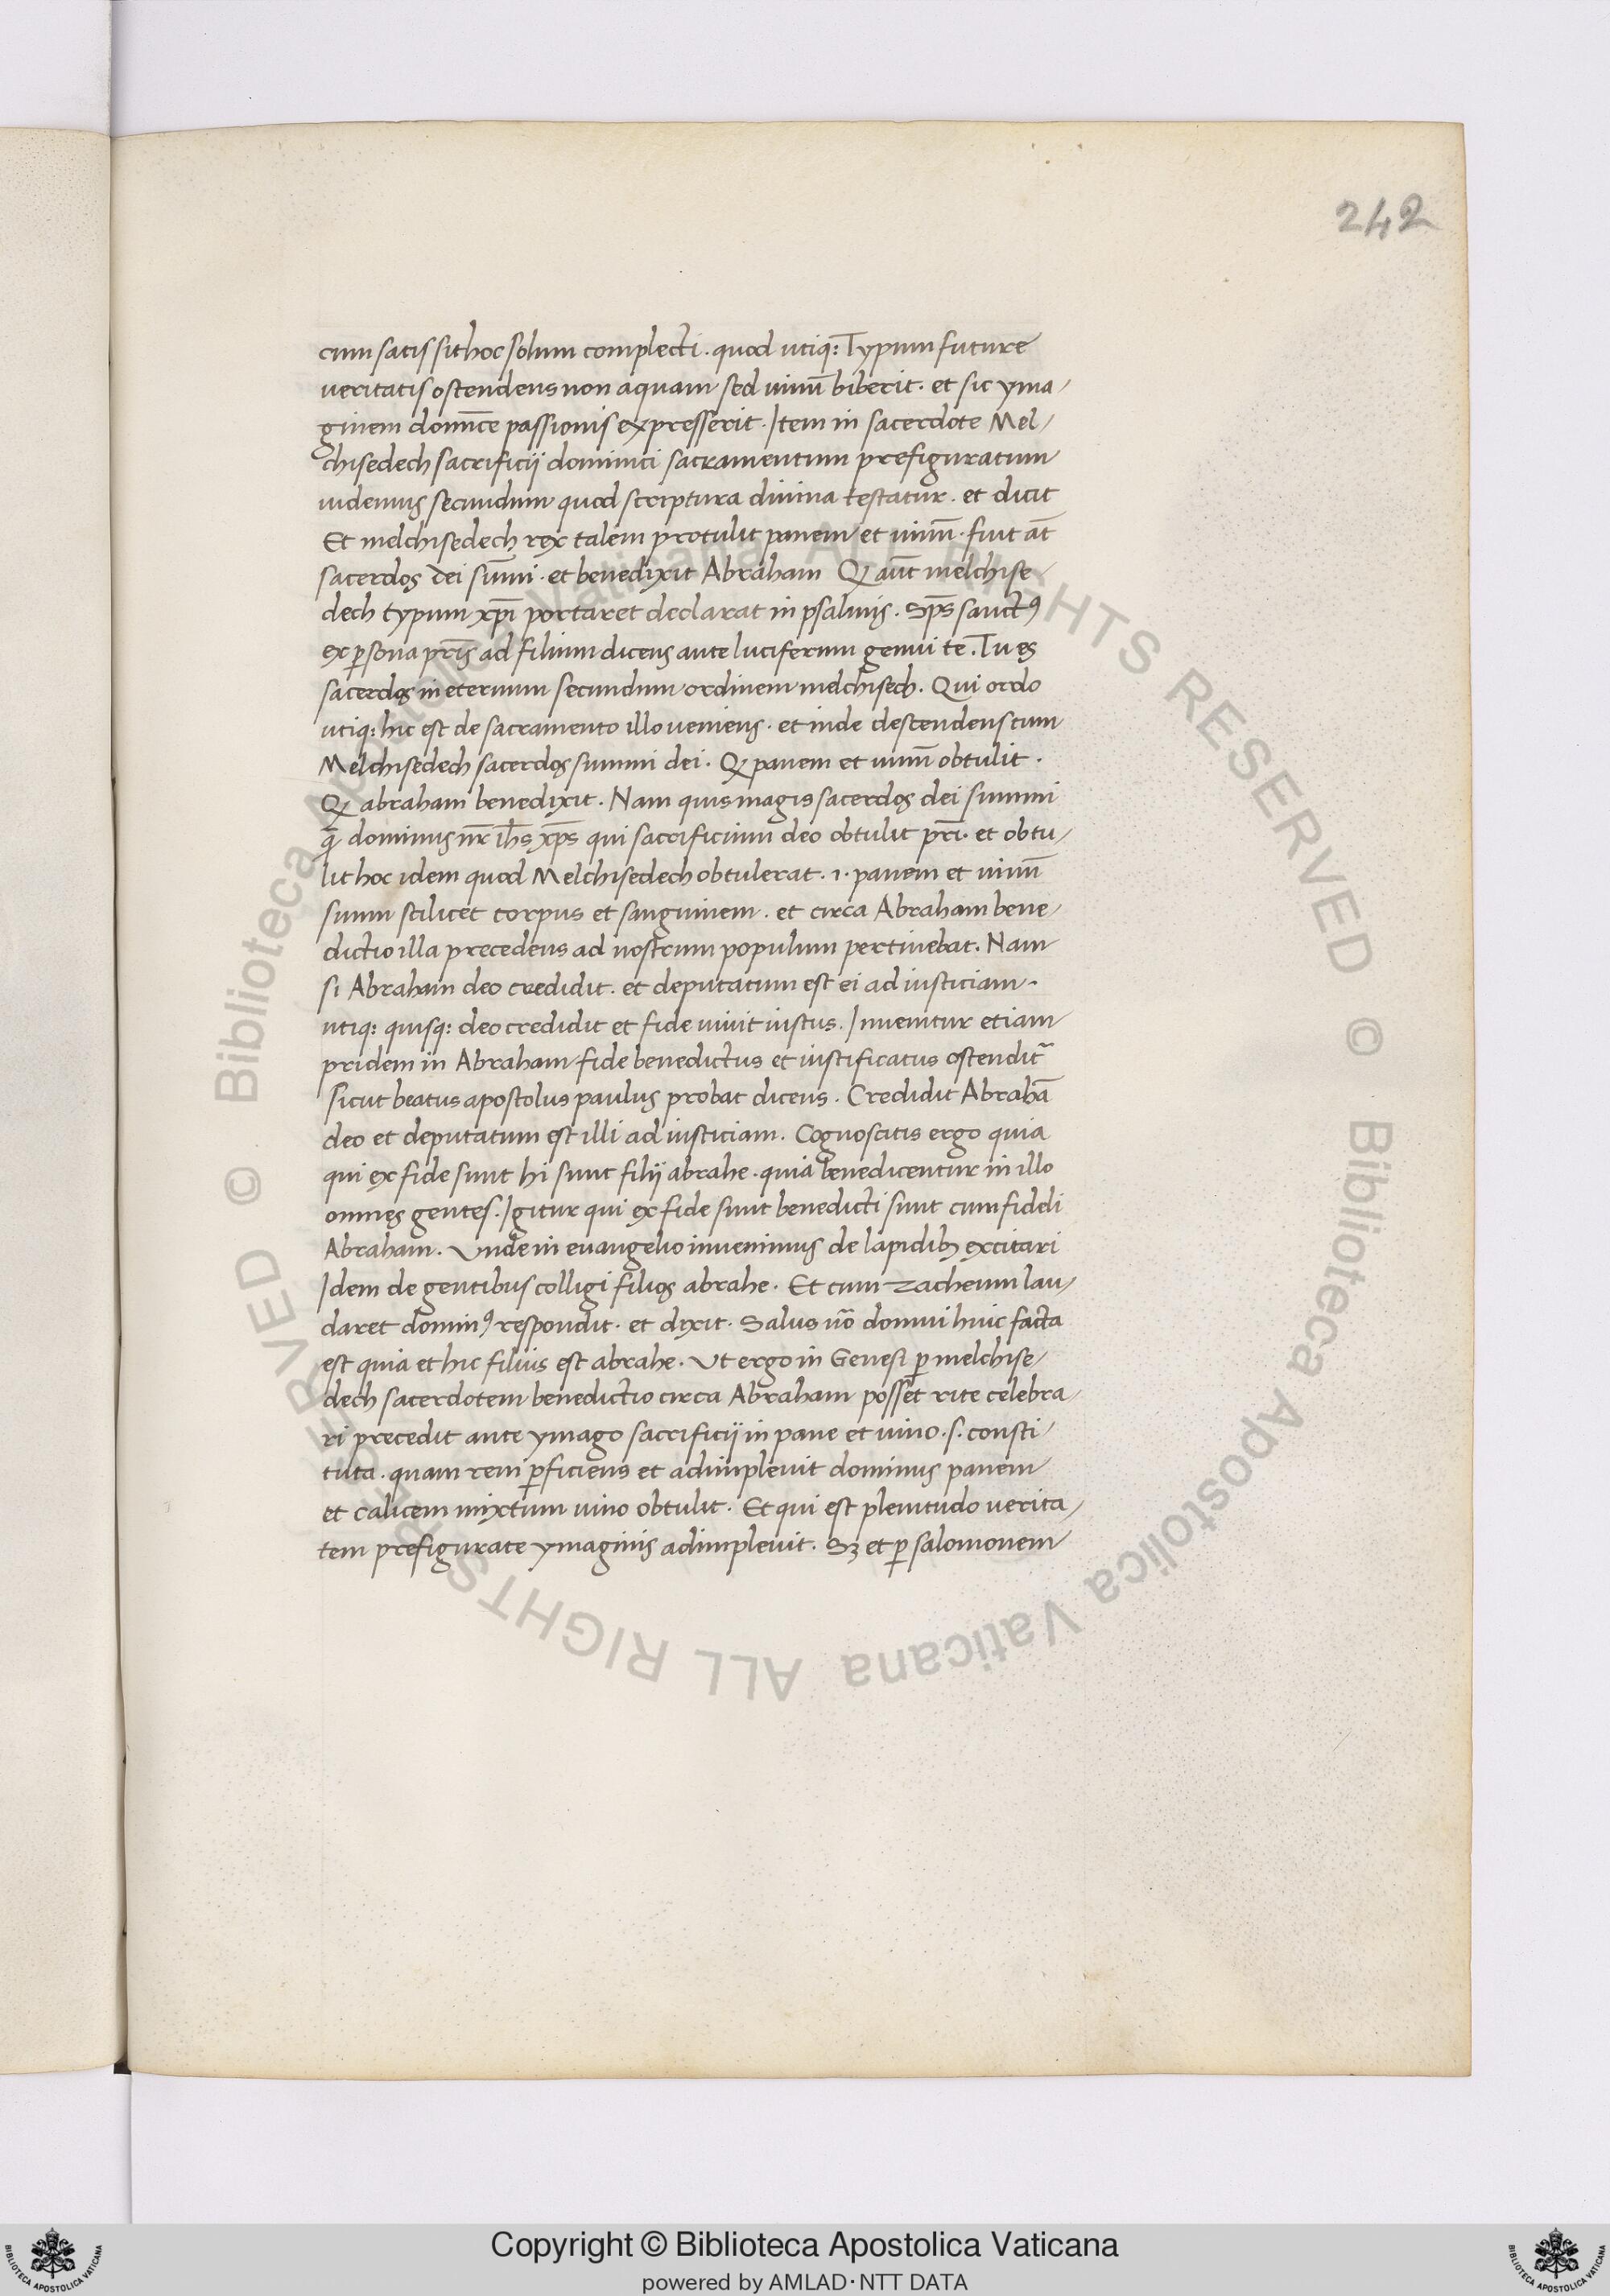 242
cum satis sit hoc solum complecti. quod utiq: Typum future
veritatis ostendens non aquam sed uinū biberit. et sic yma/
ginem domīce passionis expresserit. Item in sacerdote Mel/
chisedech sacrificij dominici sacramentum prefiguratum
uidemus secundum quod scriptura diuina testatur. et dicit
Et melchisedech rex talem protulit panem et uinū. fuit āt
sacerdos dei sūmi. et benedixit Abraham Q aūt melchise/
dech typum xp̄i portaret declarat in psalmis. Sp̄s sanctꝰ
ex ꝑsona pr̄is ad filium dicens ante luciferum genui te. Tu es
sacerdos in eternum secundum ordinem melchisech. Qui ordo
utiq: hic est de sacramento illo veniens. et inde descendens cum
Melchisedech sacerdos summi dei. Q panem et uinū obtulit.
Q abraham benedixit. Nam quis magis sacerdos dei summi
q̄ dominus nr̄ ih̄s xp̄s qui sacrificium deo obtulit pr̄i. et obtu/
lit hoc idem quod Melchisedech obtulerat. 1. panem et uinū
suum scilicet corpus et sanguinem. et circa Abraham bene/
dictio illa precedens ad nostrum populum pertinebat. Nam
si Abraham deo credidit. et deputatum est ei ad iusticiam.
utiq: quisq: deo credidit et fide uiuit iustus. Inuenitur etiam
pridem in Abraham fide benedictus et iustificatus ostendit̄
sicut beatus apostolus paulus probat dicens. Credidit Abrahā
deo et deputatum est illi ad iusticiam. Cognoscitis ergo quia
qui ex fide sunt hi sunt filij abrahe. quia benedicentur in illo
omnes gentes. Igitur qui ex fide sunt benedicti sunt cum fideli
Abraham. Unde in euangelio inuenimus de lapidibꝫ excitari
Idem de gentibus colligi filios abrahe. Et cum zacheum lau/
daret dominꝰ respondit. et dixit. Salus uō domui huic facta
est quia et hic filius est abrahe. Ut ergo in Genesi ꝑ melchise/
dech sacerdotem benedictio circa Abraham posset rite celebra/
ri precedit ante ymago sacrificij in pane et uino. s. consti/
tuta. quam rem ꝑficiens et adimpleuit dominus panem
et calicem mixtum uino obtulit. Et qui est plenitudo uerita/
tem prefigurate ymaginis adimpleuit. Sꝫ et ꝑ salomonem
© Biblioteca Apostolica Vaticana ALL RIGHTS RESERVED
© Biblioteca Apostolica Vaticana ALL RIGHTS RESERVED
Copyright © Biblioteca Apostolica Vaticana
powered by AMLAD·NTT DATA
BIBLIOTECA APOSTOLICA VATICANA
BIBLIOTECA APOSTOLICA VATICANA